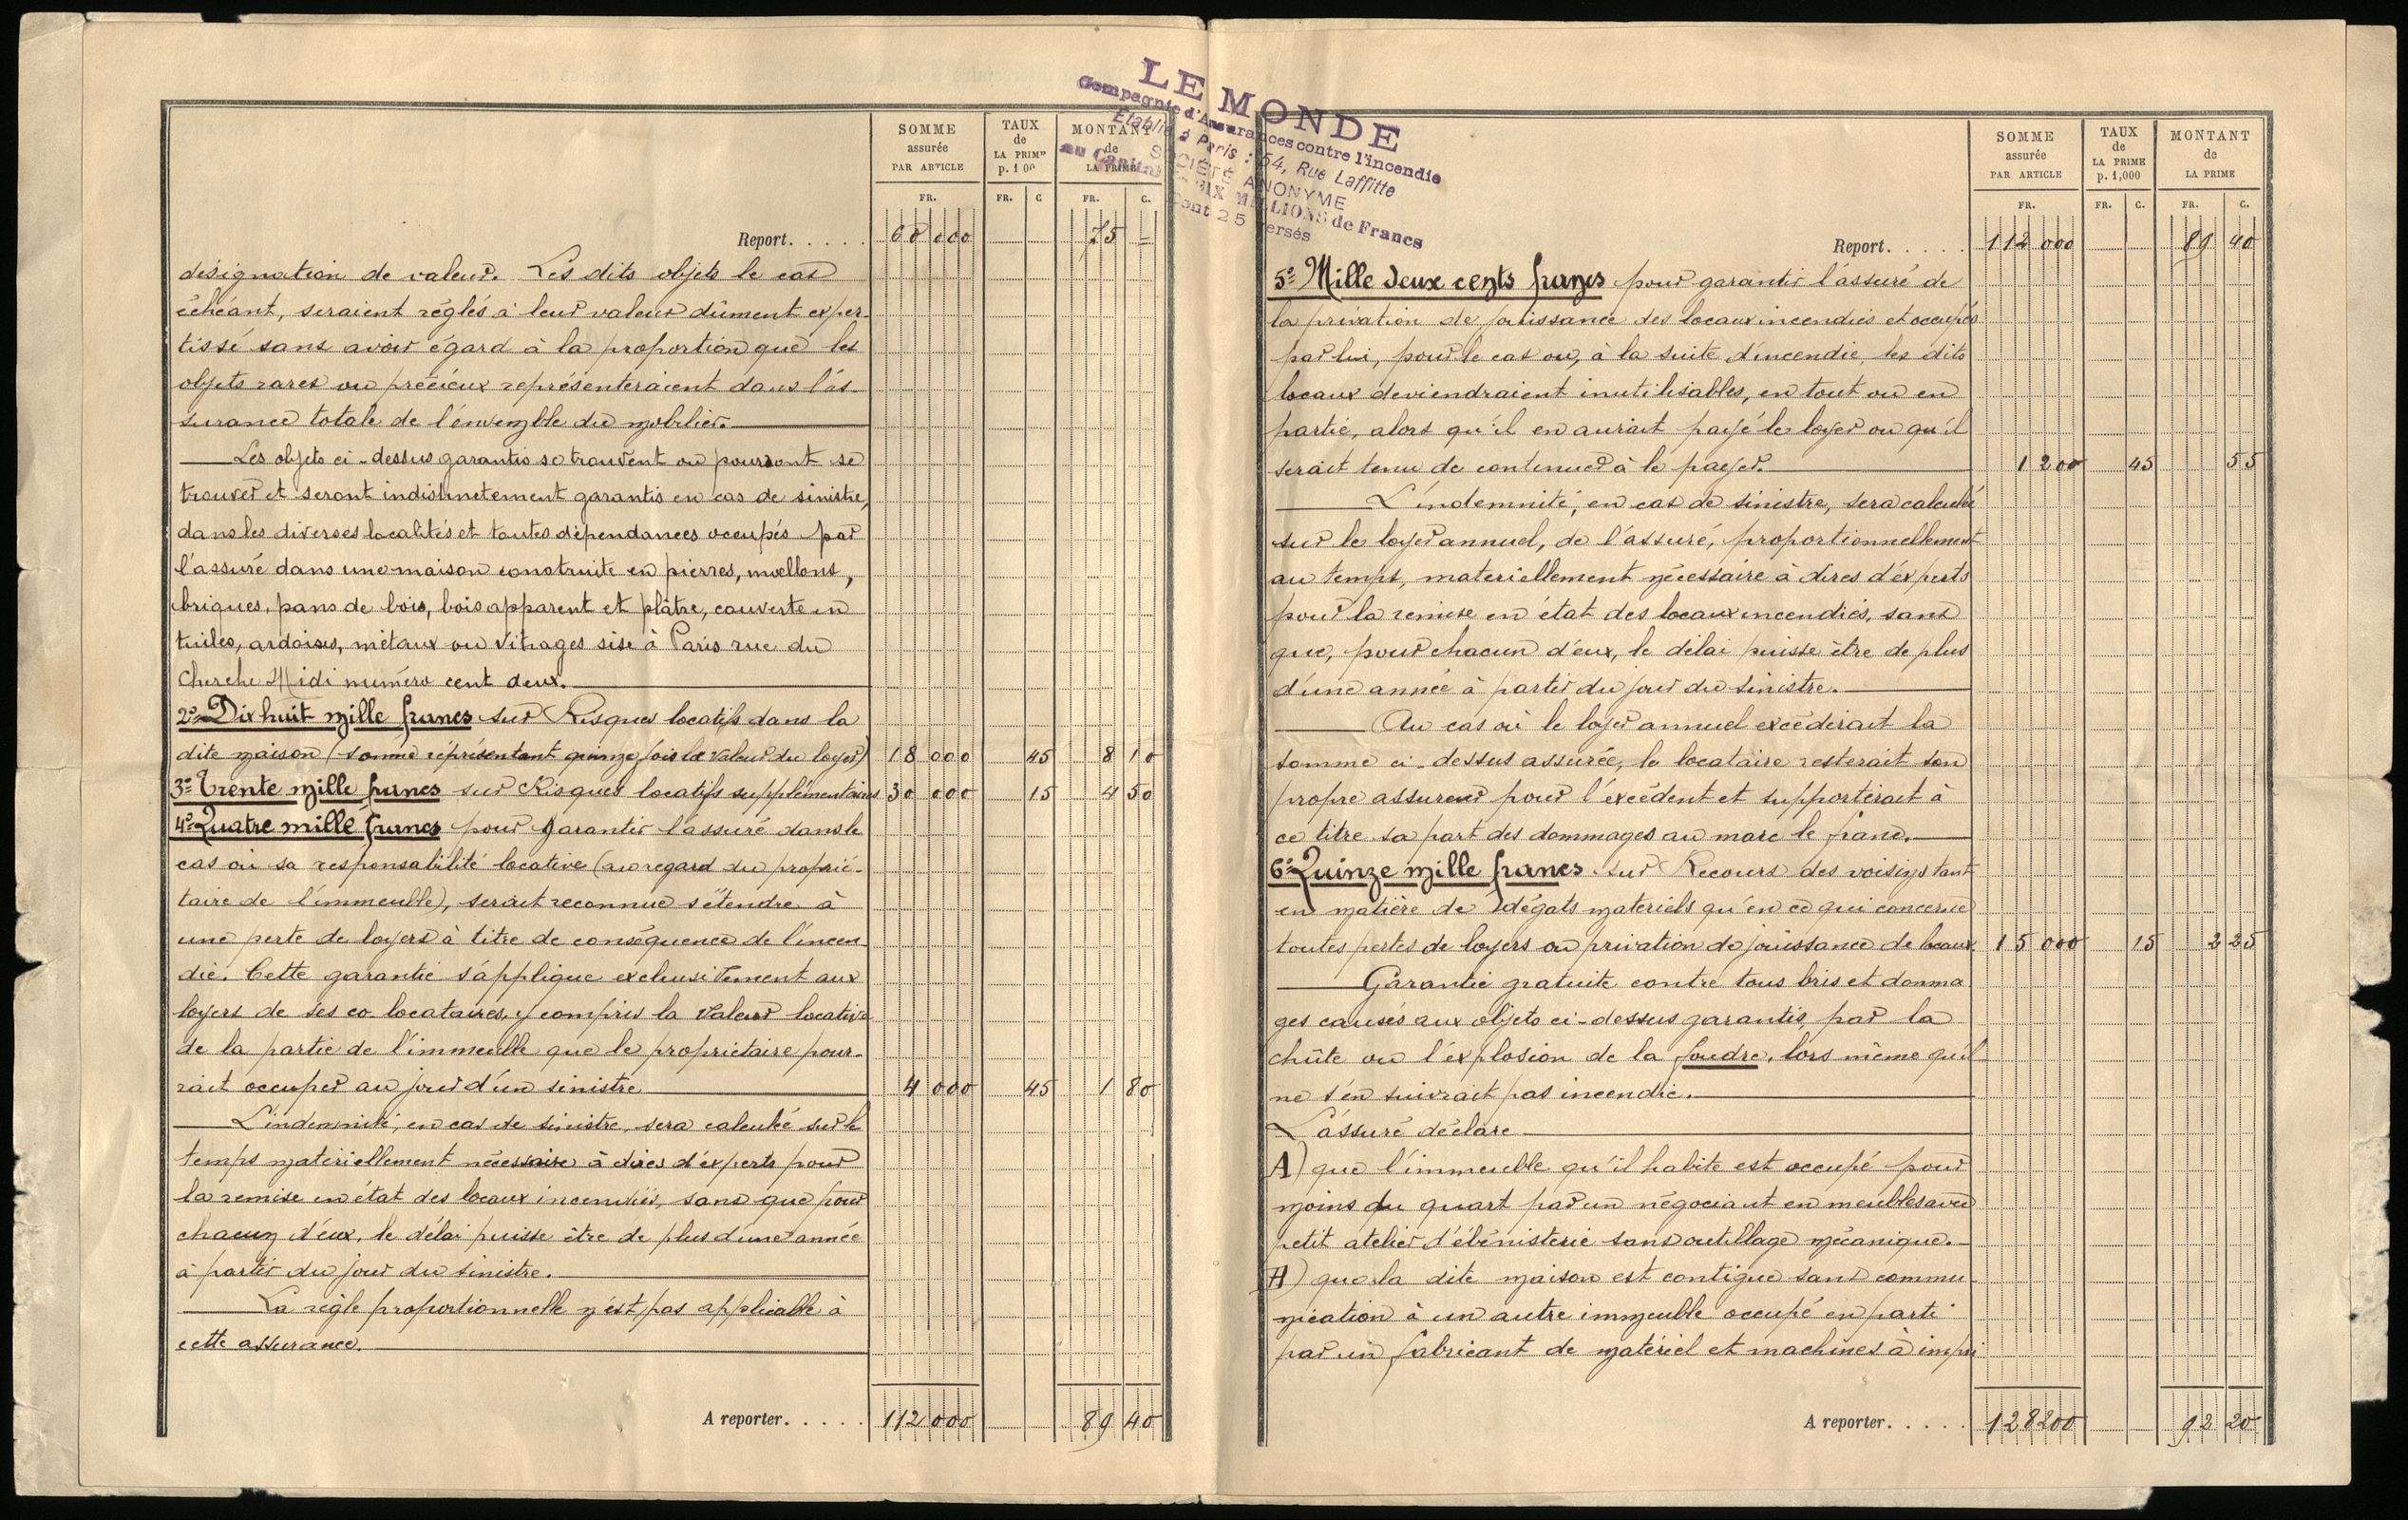 LE MONDE
Compagnie d'Assurances contre l'incendie
Établie à Paris : 54, Rue Laffitte
SOCIÉTÉ ANONYME
au Capital de DIX MILLIONS de Francs
Dont 25 versés
SOMME assurée PAR ARTICLE
TAUX de LA PRIME p. 1 00
MONTANT de LA PRIME
FR. FR. C FR. C.
Report. . . . . 60 000 75 =
désignation de valeur. Les dits objets le cas
échéant, seraient réglés à leur valeur dûment exper-
tissé sans avoir égard à la proportion que les
objets rares ou précieux représenteraient dans l'as-
surance totale de l'ensemble du mobilier.
Les objets ci-dessus garantis se trouvent ou pourront se
trouver et seront indistinctement garantis en cas de sinistre,
dans les diverses localités et toutes dépendances occupés par
l'assuré dans une maison construite en pierres, moellons,
briques, pans de bois, bois apparent et plâtre, couverte en
tuiles, ardoises, métaux ou vitrages sise à Paris rue du
Cherche Midi numéro cent deux.
2º Dix huit mille francs sur Risques locatifs dans la
dite maison (somme réprésentant quinze fois la valeur du loyer) 18 000 45 8 10
3º Trente mille francs sur Risques locatifs supplémentaires 30 000 15 4 50
4º Quatre mille francs pour garantir l'assuré dans le
cas où sa responsabilité locative (au regard du proprié-
taire de l'immeuble), serait reconnue s'étendre à
une perte de loyers à titre de conséquence de l'incen-
die. Cette garantie s'applique exclusivement aux
loyers de ses co-locataires, y compris la valeur locative
de la partie de l'immeuble que le propriétaire pour-
rait occuper au jour d'un sinistre 4 000 45 1 80
L'indemnité, en cas de sinistre, sera calculée sur le
temps matériellement nécessaire à dires d'experts pour
la remise en état des locaux incendiés, sans que pour
chacun d'eux, le délai puisse être de plus d'une année
à partir du jour du sinistre.
La règle proportionnelle n'est pas applicable à
cette assurance.
A reporter. . . . . 112 000 89 40
SOMME assurée PAR ARTICLE
TAUX de LA PRIME p. 1,000
MONTANT de LA PRIME
FR. FR. C. FR. C.
Report. . . . . 112 000 89 40
5º Mille deux cents francs pour garantir l'assuré de
la privation de jouissance des locaux incendiés et occupés
par lui, pour le cas ou, à la suite d'incendie, les dits
locaux deviendraient inutilisables, en tout ou en
partie, alors qu'il en aurait payé le loyer ou qu'il
serait tenu de continuer à le payer. 1 200 45 55
L'indemnité, en cas de sinistre, sera calculée
sur le loyer annuel, de l'assuré, proportionnellement
au temps, materiellement nécessaire à dires d'experts
pour la remise en état des locaux incendiés, sans
que, pour chacun d'eux, le délai puisse être de plus
d'une année à partir du jour du sinistre.
Au cas où le loyer annuel excéderait la
somme ci-dessus assurée, le locataire resterait son
propre assureur pour l'excédent et supporterait à
ce titre sa part des dommages au marc le franc.
6º Quinze mille francs sur Recours des voisins tant
en matière de dégats materiels qu'en ce qui concerne
toutes pertes de loyers ou privation de jouissance de locaux. 15 000 15 2 25
Garantie gratuite contre tous bris et domma
ges causés aux objets ci-dessus garantis, par la
chûte ou l'explosion de la foudre, lors même qu'il
ne s'en suivrait pas incendie.
L'assuré déclare
A) que l'immeuble qu'il habite est occupé pour
moins du quart par un négociant en meubles avec
petit atelier d'ébénisterie sans outillage mécanique.
H) que la dite maison est contigue sans commu-
nication à un autre immeuble occupé en parti
par un fabricant de matériel et machines à impri
A reporter. . . . . 128200 92 20